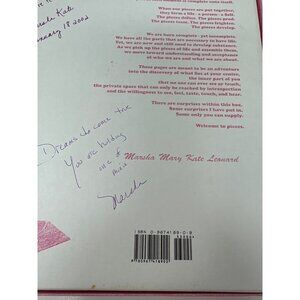 complete unto itself.
When our pieces are put together,
they form a life - a person - a
The pieces define. The pieces prod.
The pieces tease. The pieces frighten.
The pieces develop.
We are born complete - yet incomplete.
We have all the parts that are necessary to have life.
Yet, we are new and still need to develop substance.
As we pick up the pieces of life and assemble them,
we move toward understanding and acceptance
of who we are and what we are about.
These pages are meant to be an adventure
into the discovery of what lies at your center,
the inner part of you
that no one can ever see or touch,
the private space that can only be reached by introspection
and the willingness to see, feel, taste, touch, and hear.
There are surprises within this box.
Some surprises I have put in.
Some only you can supply.
Welcome to pieces.
Kate
January 18 2002
Dreams do come true
You are holding
one of
mine
Marsha
Marsha Mary Kate Leonard
ISBN 0-9674189-0-9
9 780967 418902